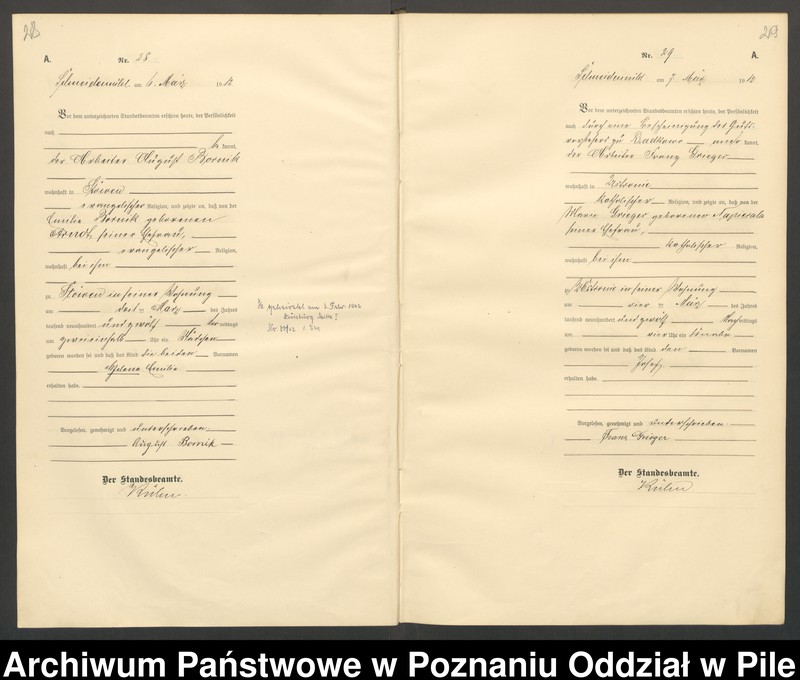 28
A.
Nr. 28
Schneidemühl am 6. März 1912
Vor dem unterzeichneten Standesbeamten erschien heute, der Persönlichkeit
nach
be kannt,
der Arbeiter August Bornik
wohnhaft in Stöwen
evangelischer Religion, und zeigte an, daß von der
Emilie Bornik geborenen
Arndt, seiner Ehefrau,
evangelischer Religion,
wohnhaft bei ihm
zu Stöwen in seiner Wohnung
am drei ten März des Jahres
tausend neunhundert und zwölf Vor mittags
um zwei einhalb Uhr ein Mädchen
geboren worden sei und daß das Kind die beiden Vornamen
Helena Emilie
erhalten habe.
Vorgelesen, genehmigt und unterschrieben
August Bornik
Der Standesbeamte.
Kühn
geheiratet am 3. Febr. 1942
29
Nr. 29
A.
Schneidemühl am 7. März 1912
Vor dem unterzeichneten Standesbeamten erschien heute, der Persönlichkeit
nach durch eine Bescheinigung des Guts-
vorstehers zu kannt,
der Arbeiter Franz Grieger
wohnhaft in
katholischer Religion, und zeigte an, daß von der
Marie Grieger geborenen Napierala
seiner Ehefrau,
katholischer Religion,
wohnhaft bei ihm
zu in seiner Wohnung
am vier ten März des Jahres
tausend neunhundert und zwölf Nach mittags
um vier Uhr ein Knabe
geboren worden sei und daß das Kind den Vornamen
Josef
erhalten habe.
Vorgelesen, genehmigt und unterschrieben
Franz Grieger
Der Standesbeamte.
Kühn
Archiwum Państwowe w Poznaniu Oddział w Pile